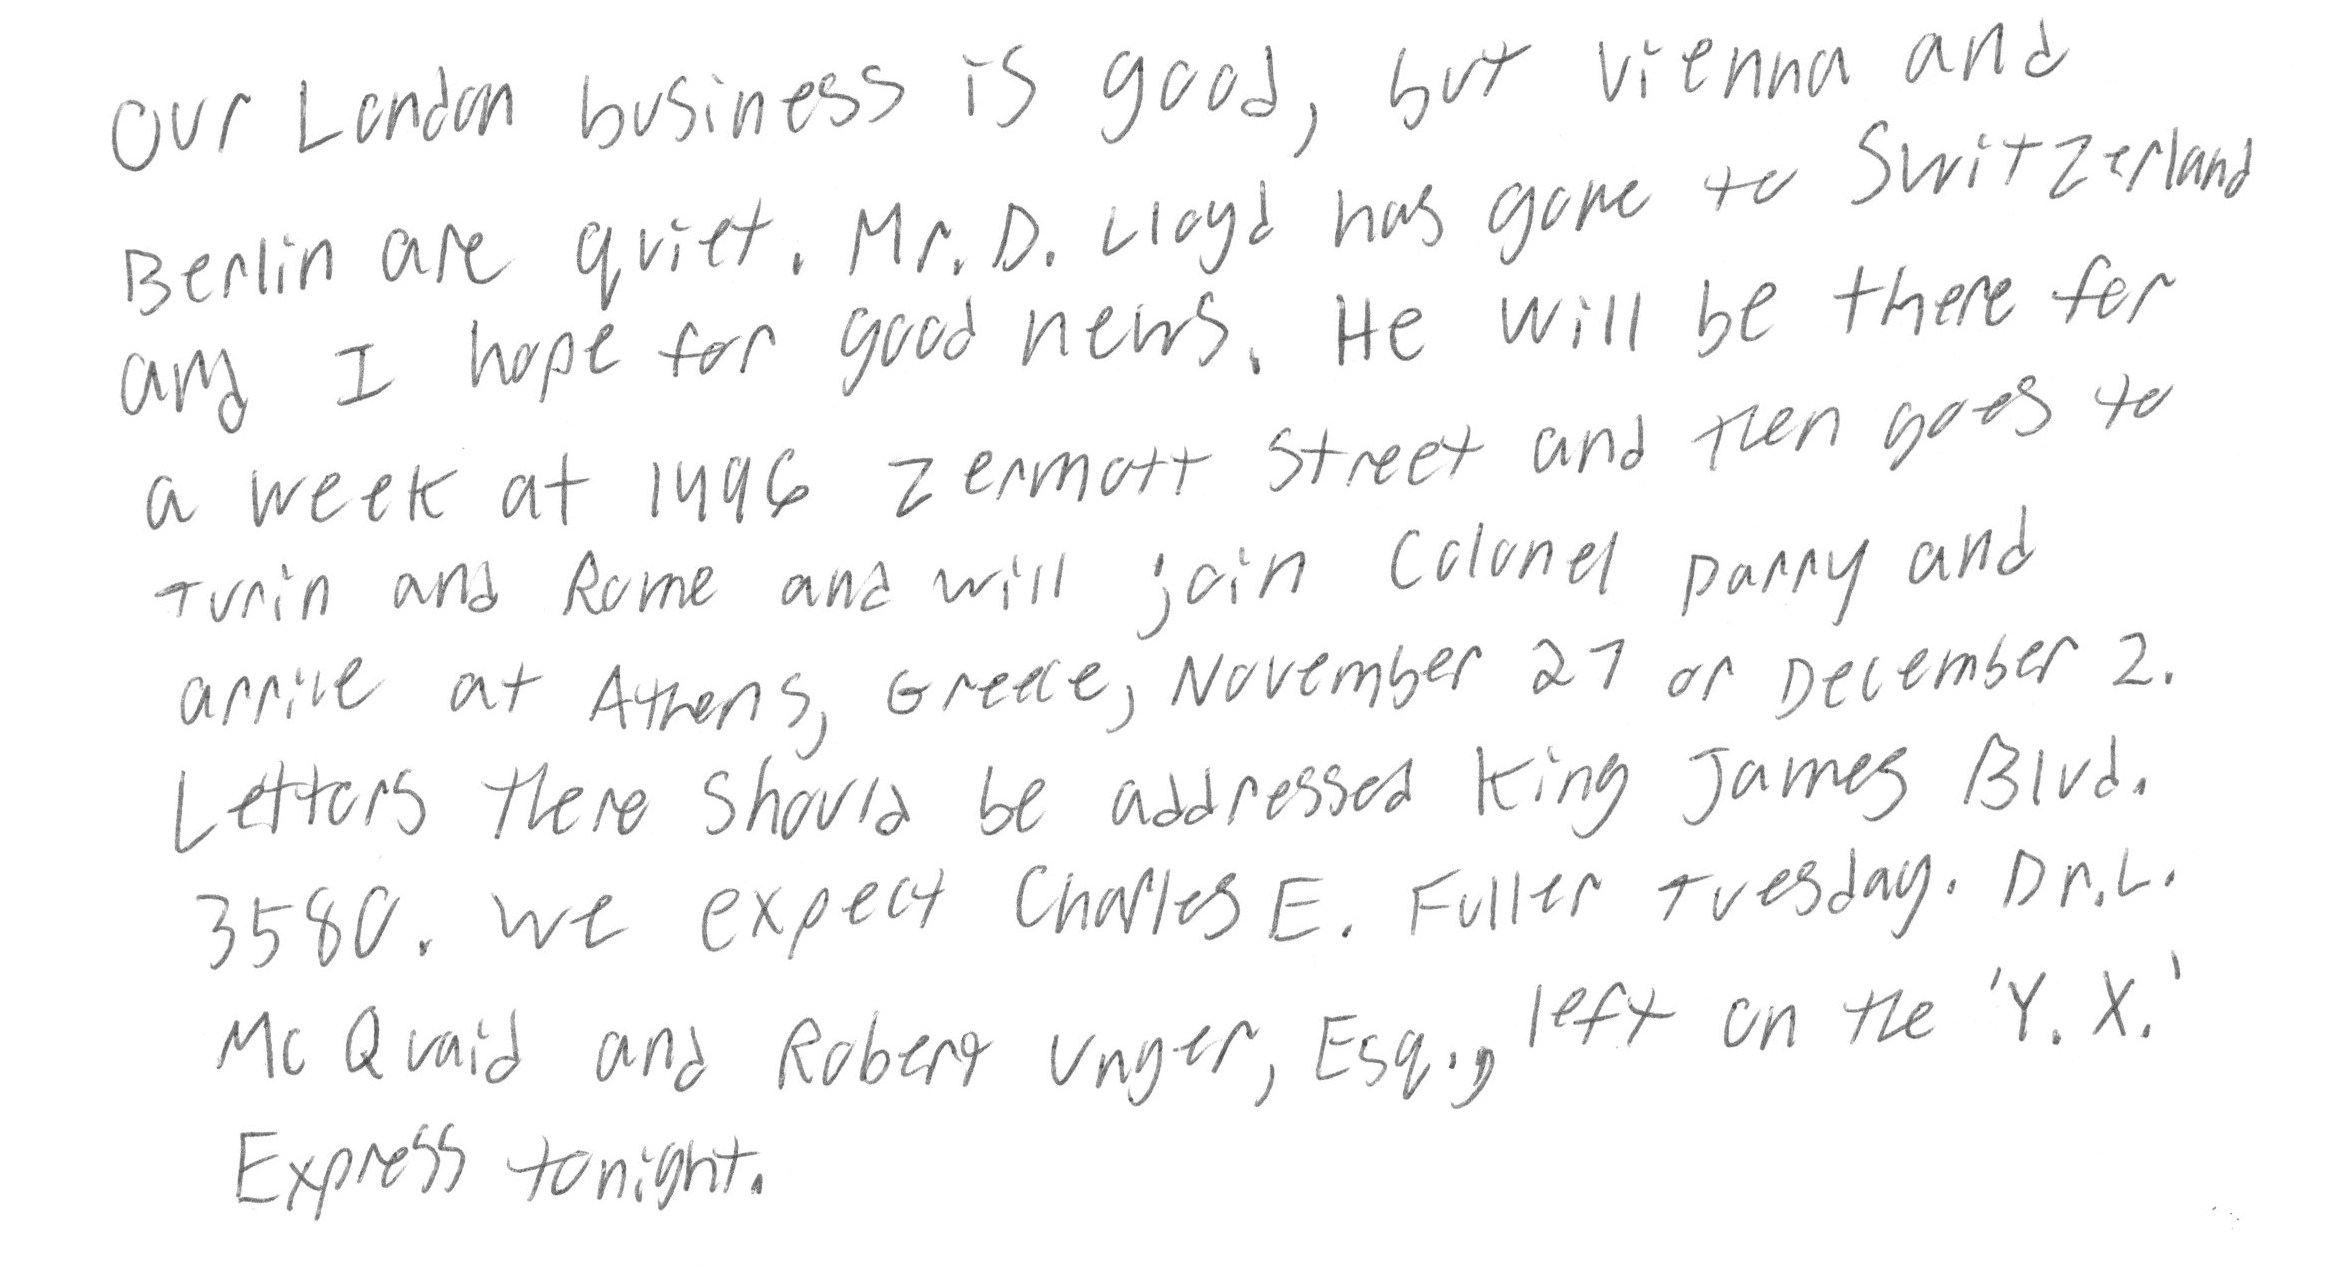 Our London business is good, but Vienna and
Berlin are quiet. Mr. D. Lloyd has gone to Switzerland
and I hope for good news. He will be there for
a week at 1496 Zermott Street and then goes to
Turin and Rome and will join Colonel Parry and
arrive at Athens, Greece, November 27 or December 2.
Letters there should be addressed King James Blvd.
3580. We expect Charles E. Fuller Tuesday. Dr. L.
McQuaid and Robert Unger, Esq., left on the 'Y. X.'
Express tonight.